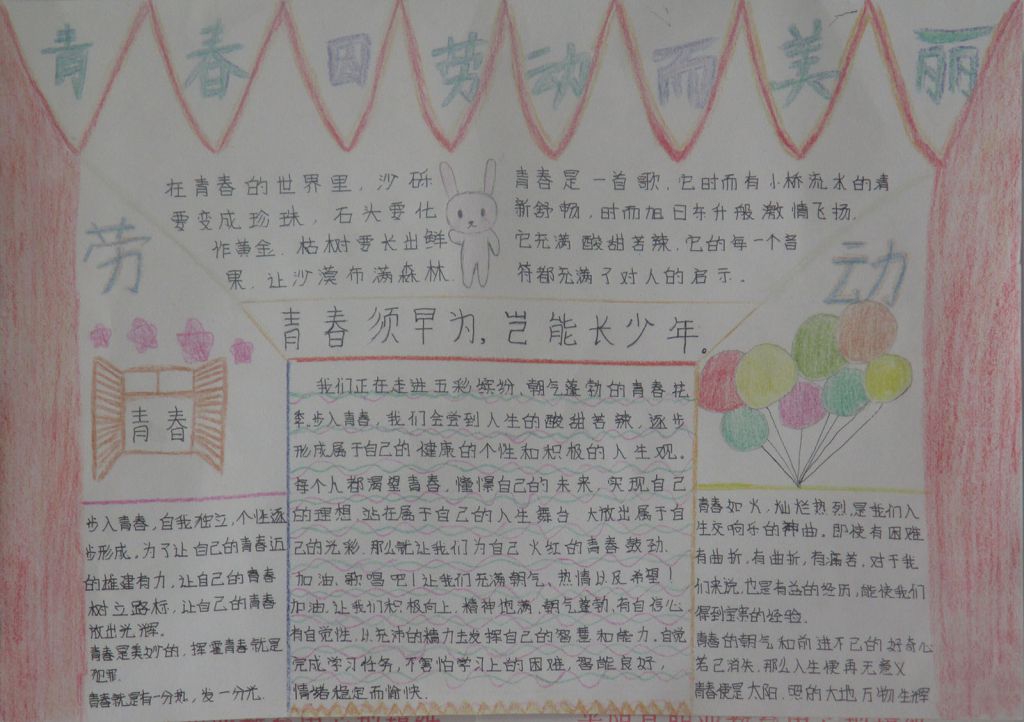 青春因劳动而美丽
在青春的世界里,沙砾
要变成珍珠,石头要化
作黄金.枯树要长出鲜
果,让沙漠布满森林.
青春是一首歌,它时而有小桥流水的清
新舒畅,时而旭日东升般激情飞扬.
它充满酸甜苦辣.它的每一个音
符都充满了对人的启示。
劳动
青春须早为,岂能长少年。
青春
步入青春,自我独立,个性逐
步形成。为了让自己的青春迈
的雄建有力,让自己的青春
树立路标,让自己的青春
放出光辉。
青春是美妙的,挥霍青春就是
犯罪.
青春就是有一分热,发一分光.
我们正在走进五彩缤纷、朝气蓬勃的青春花
季.步入青春,我们会尝到人生的酸甜苦辣,逐步
形成属于自己的健康的个性和积极的人生观。
每个人都渴望青春,憧憬自己的未来,实现自己
的理想.站在属于自己的人生舞台 大放出属于自
己的光彩.那么就让我们为自己火红的青春鼓劲.
加油.歌唱吧!让我们充满朝气、热情以及希望!
加油.让我们积极向上,精神饱满、朝气蓬勃,有自信心
有自觉性.以充沛的精力去发挥自己的智慧和能力。自觉
完成学习任务,不害怕学习上的困难,智能良好,
情绪稳定而愉快.
青春如火,灿烂热烈,是我们人
生交响乐的神曲。即使有困难
有曲折,有曲折,有痛苦,对于我
们来说,也是有益的经历,能使我们
得到宝贵的经验.
青春的朝气和前进不已的好奇心
若已消失,那么人生便再无意义
青春便是太阳,照的大地万物生辉